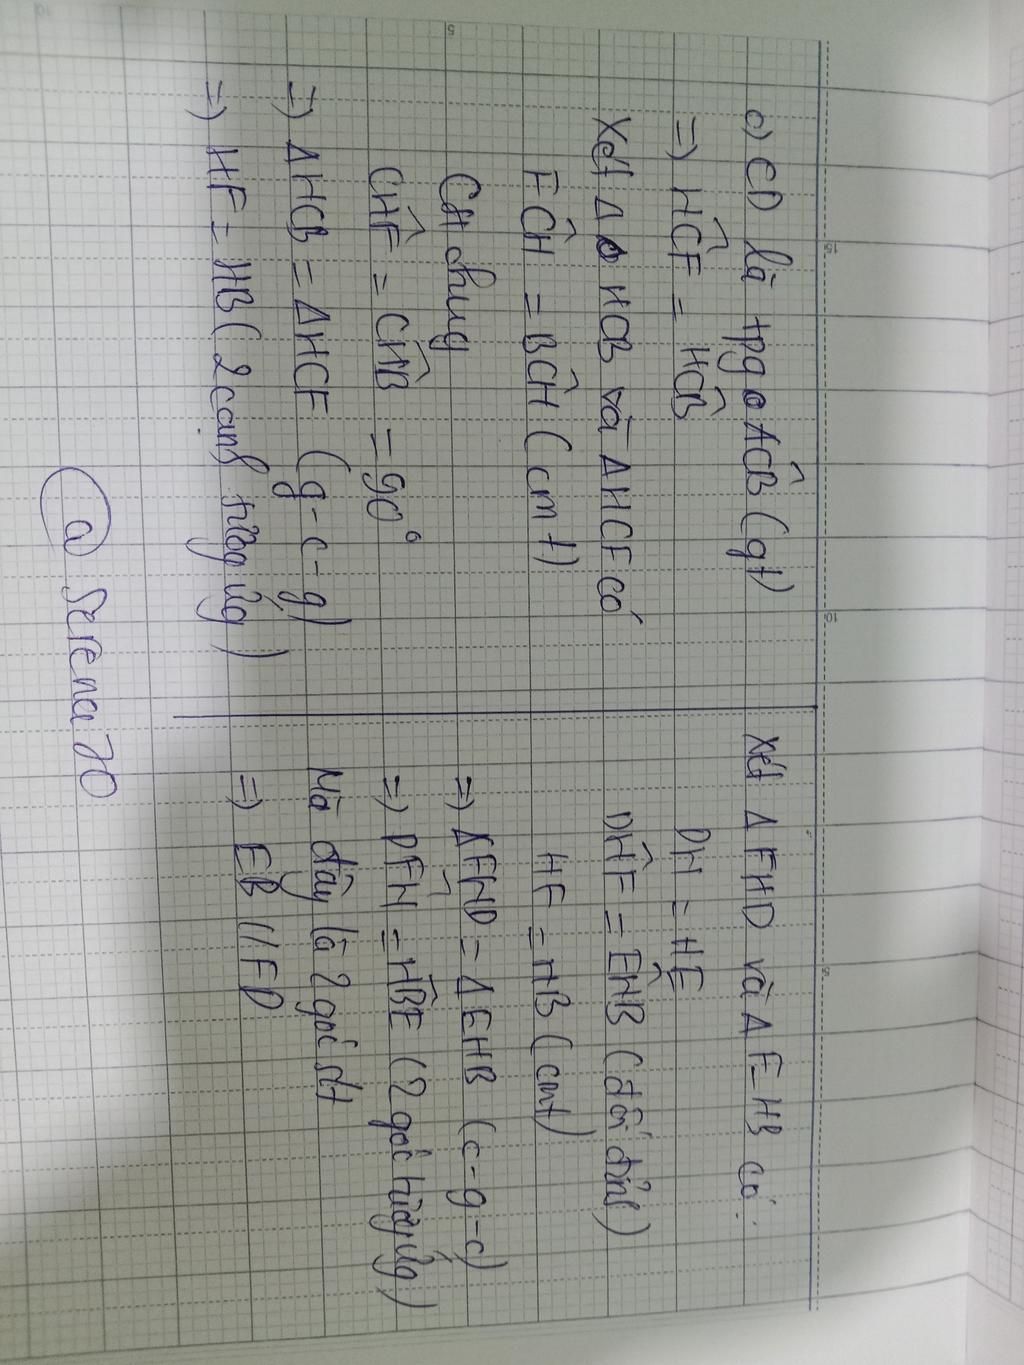 c) CD là tpg ACB (gt)
=) HCF = HCB
Xét Δ HCB và Δ HCF có
FCH = BCH (cmt)
CH chung
CHF = CHB = 90°
=) Δ HCB = Δ HCF (g-c-g)
=) HF = HB (2 cạnh tương ứng)
@ Serena 70
Xét Δ FHD và Δ EHB có:
DH = HE
DHF = EHB (đối đỉnh)
HF = HB (cmt)
=) Δ FHD = Δ EHB (c-g-c)
=) DFH = HBE (2 góc tương ứng)
Mà đây là 2 góc slt
=) EB // FD
5
15
10
5
10